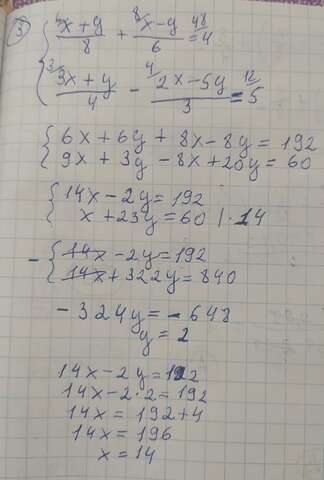 ③ { ⁶x+y/8 + ⁸x-y/6 = ⁴⁸4
{ ³3x+y/4 - ⁴2x-5y/3 = ¹²5
{ 6x+6y+8x-8y=192
{ 9x+3y-8x+20y=60
{ 14x-2y=192
{ x+23y=60 |·14
- { 14x-2y=192
{ 14x+322y=840
-324y=-648
y=2
14x-2y=192
14x-2·2=192
14x=192+4
14x=196
x=14